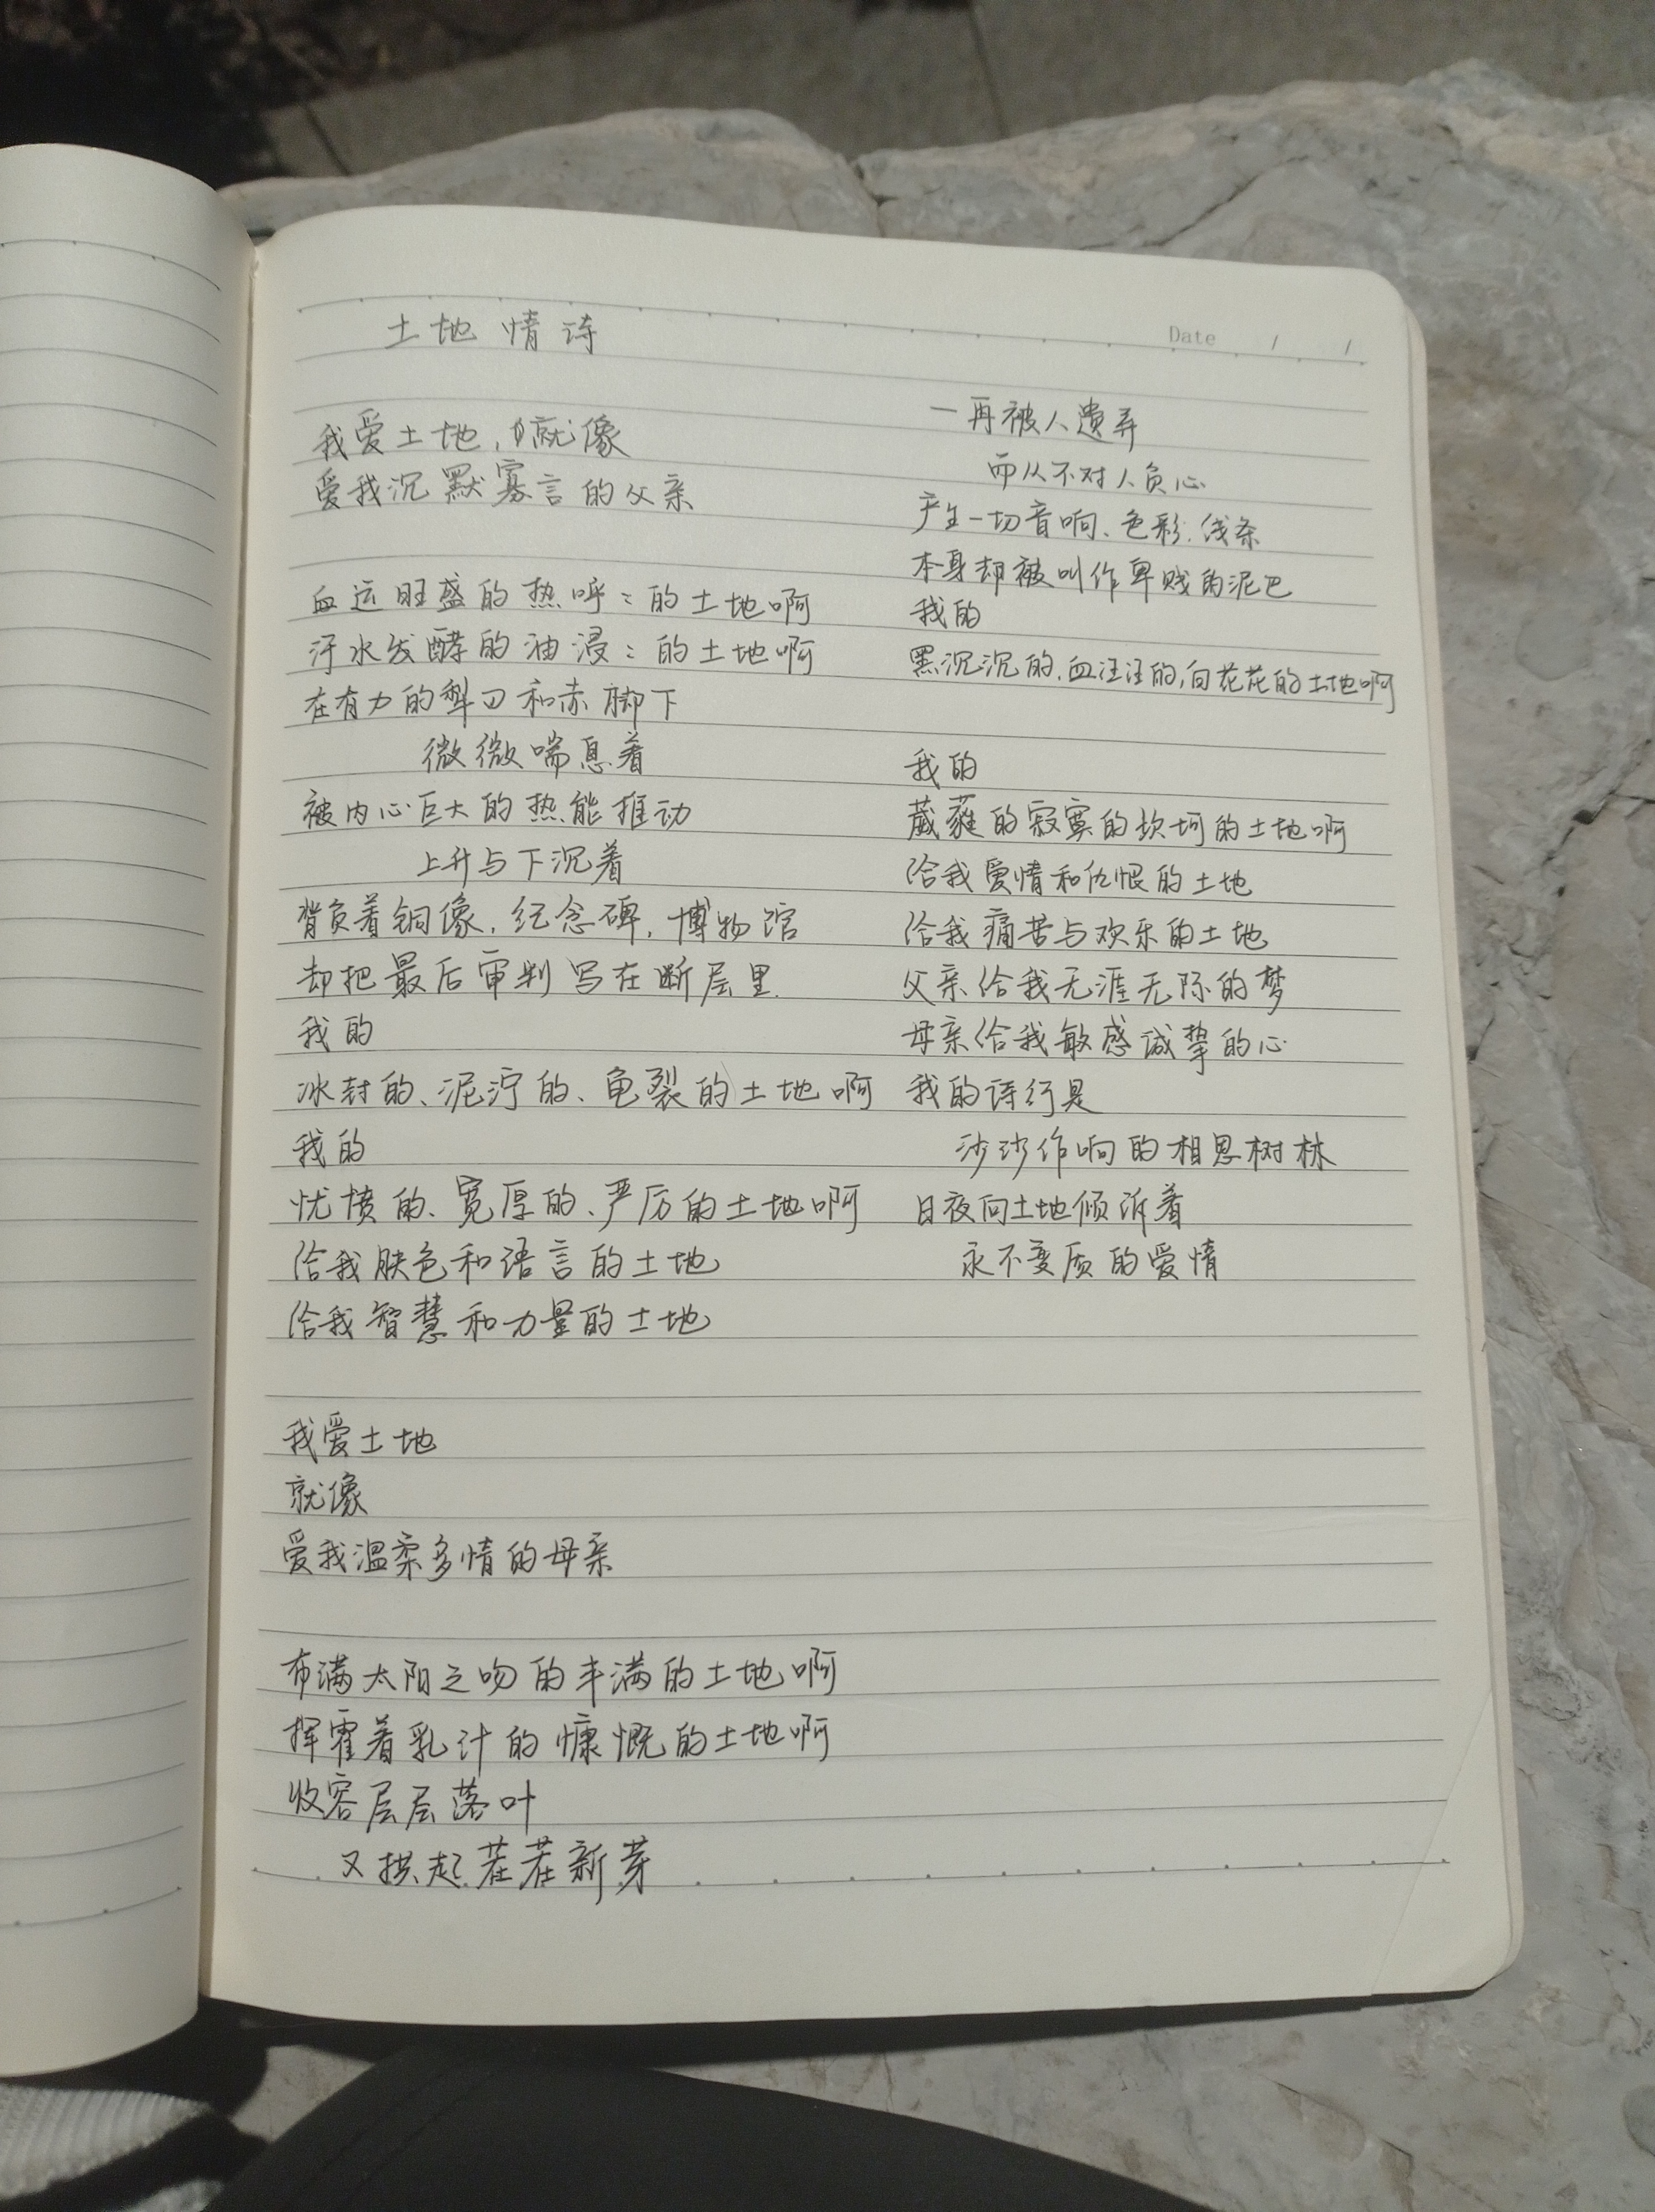 土地情诗
Date / /
我爱土地，就像
爱我沉默寡言的父亲
血运旺盛的热呼:的土地啊
汗水发酵的油浸:的土地啊
在有力的犁刃和赤脚下
微微喘息着
被内心巨大的热能推动
上升与下沉着
背负着铜像，纪念碑，博物馆
却把最后审判写在断层里.
我的
冰封的、泥泞的、龟裂的土地啊
我的
忧愤的、宽厚的、严厉的土地啊
给我肤色和语言的土地
给我智慧和力量的土地
我爱土地
就像
爱我温柔多情的母亲
布满太阳之吻的丰满的土地啊
挥霍着乳汁的慷慨的土地啊
收容层层落叶
又拱起茬茬新芽
一再被人遗弃
而从不对人负心
产生一切音响、色彩.线条
本身却被叫作卑贱的泥巴
我的
黑沉沉的，血汪汪的，白花花的土地啊
我的
葳蕤的寂寞的坎坷的土地啊
给我爱情和仇恨的土地
给我痛苦与欢乐的土地
父亲给我无涯无际的梦
母亲给我敏感诚挚的心
我的诗行是
沙沙作响的相思树林
日夜向土地倾诉着
永不变质的爱情